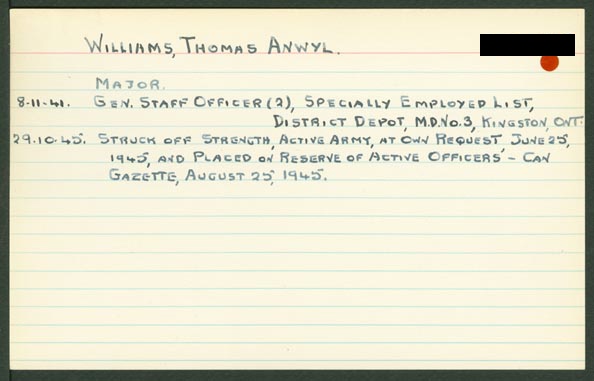 WILLIAMS, THOMAS ANWYL.
MAJOR.
8-11-41. GEN. STAFF OFFICER (2), SPECIALLY EMPLOYED LIST,
DISTRICT DEPOT, M.D. NO. 3, KINGSTON, ONT.
29.10.45. STRUCK OFF STRENGTH, ACTIVE ARMY, AT OWN REQUEST JUNE 25,
1945, AND PLACED ON RESERVE OF ACTIVE OFFICERS' - CAN
GAZETTE, AUGUST 25, 1945.